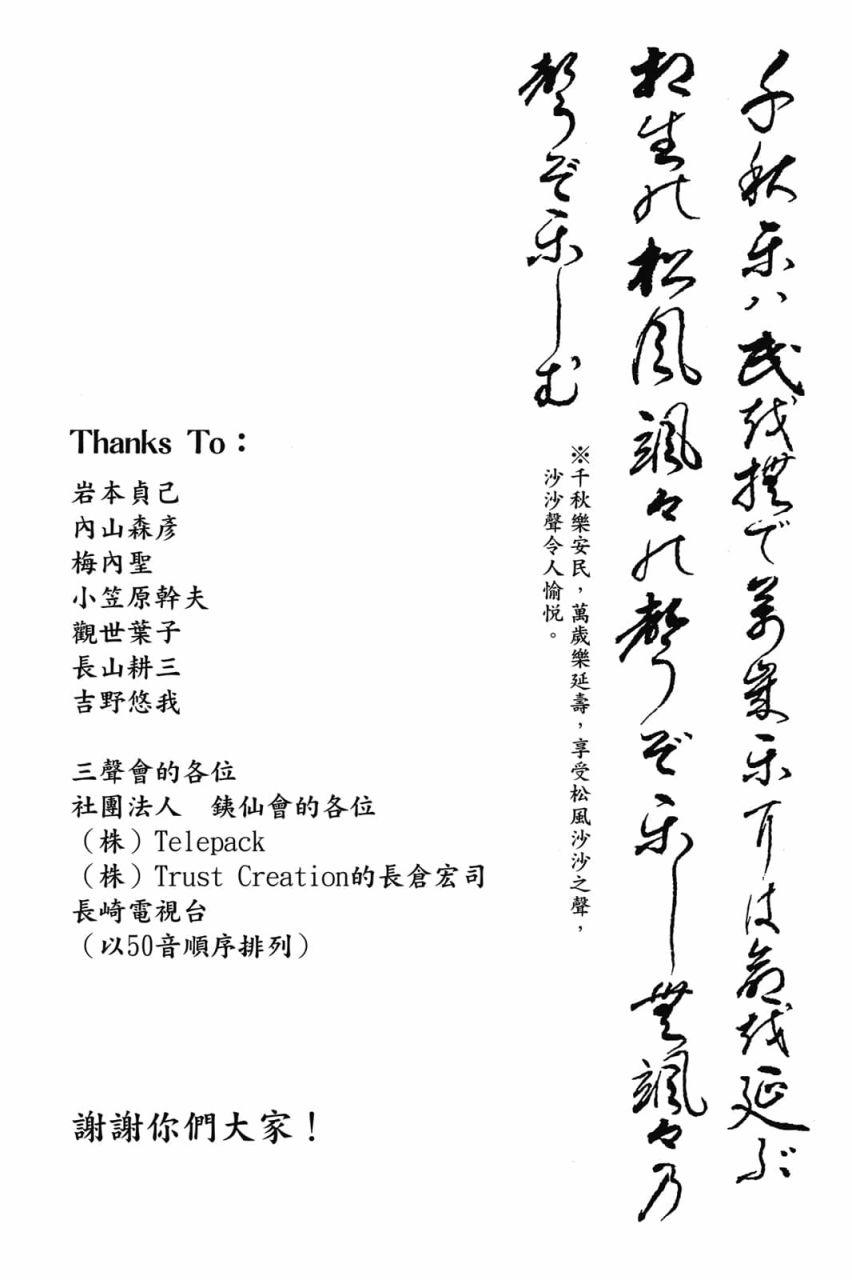 千秋楽ハ民越撫で萬歳楽耳は命越延ぶ
相生能松風颯々能聲ぞ楽しむ颯々乃
聲ぞ楽しむ
※千秋樂安民，萬歲樂延壽，享受松風沙沙之聲，
沙沙聲令人愉悅。
Thanks To：
岩本貞己
內山森彥
梅內聖
小笠原幹夫
觀世葉子
長山耕三
吉野悠我
三聲會的各位
社團法人　銕仙會的各位
（株）Telepack
（株）Trust Creation的長倉宏司
長崎電視台
（以50音順序排列）
謝謝你們大家！